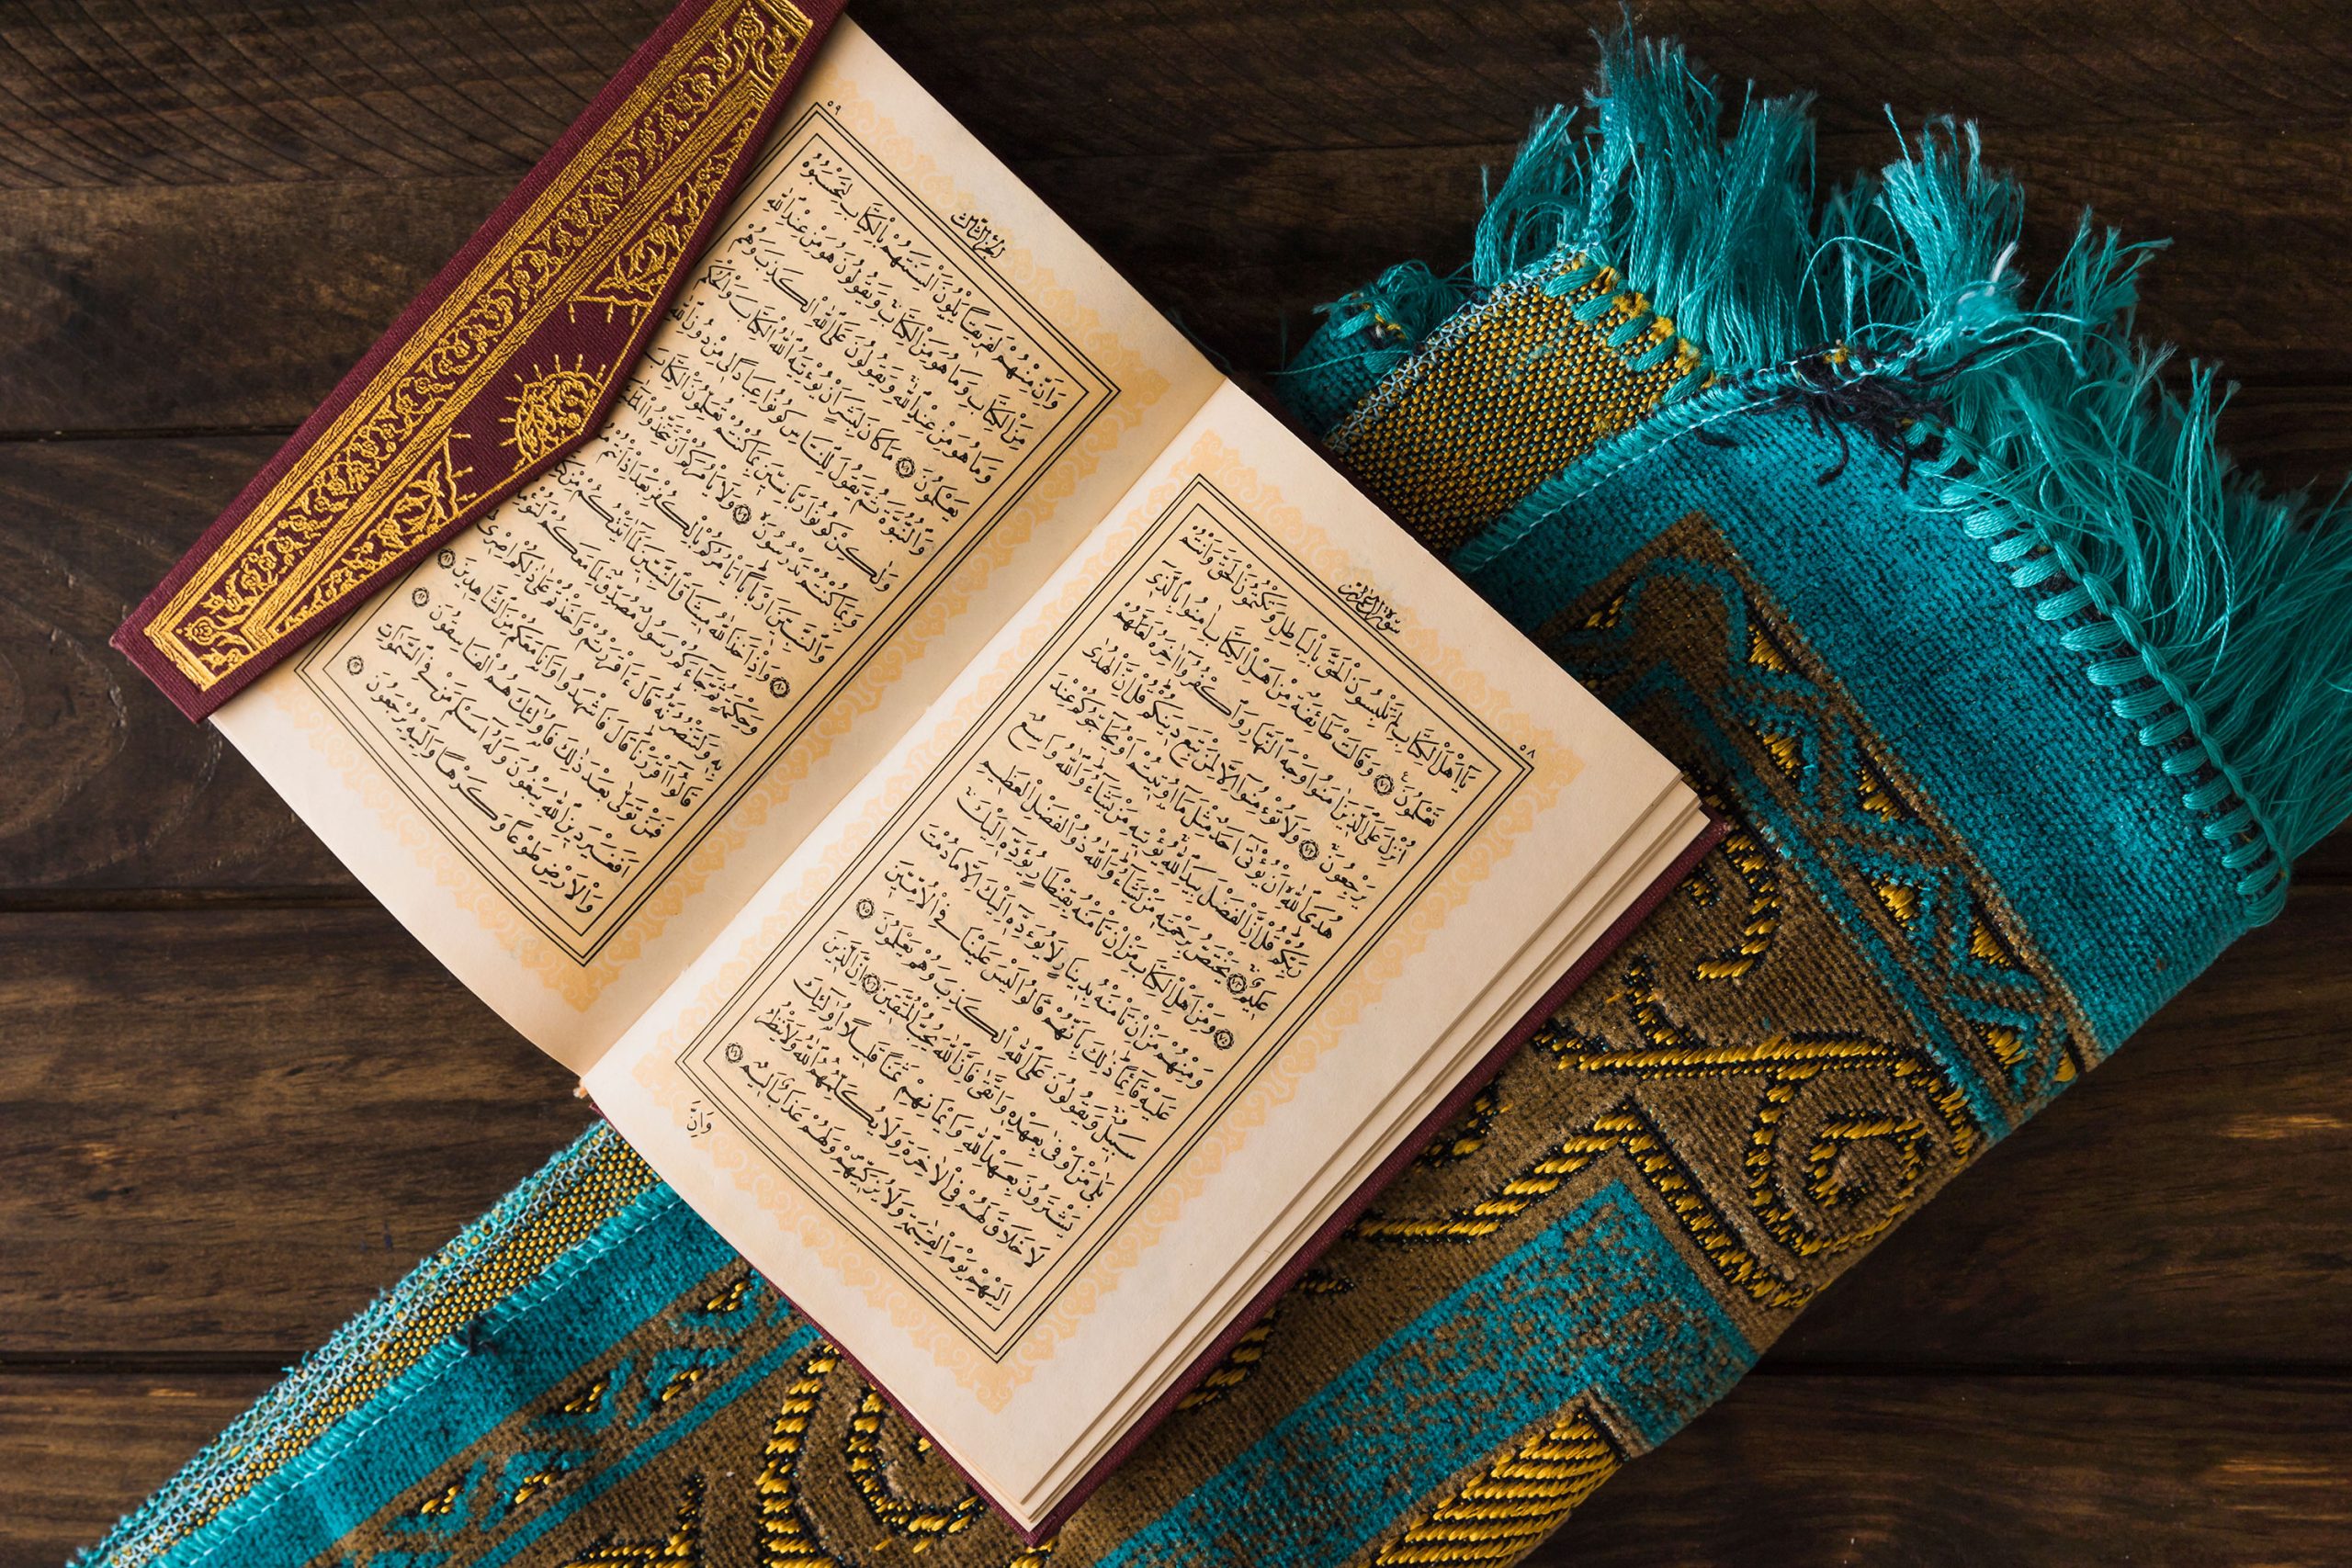 سُورَةُ اٰلِ عِمْرٰنَ
٥٨
يَٓا اَهْلَ الْكِتَابِ لِمَ تَلْبِسُونَ الْحَقَّ بِالْبَاطِلِ وَتَكْتُمُونَ الْحَقَّ وَاَنْتُمْ
تَعْلَمُونَ ﴿٧١﴾ وَقَالَتْ طَٓائِفَةٌ مِنْ اَهْلِ الْكِتَابِ اٰمِنُوا بِالَّذ۪ٓي
اُنْزِلَ عَلَى الَّذ۪ينَ اٰمَنُوا وَجْهَ النَّهَارِ وَاكْفُرُٓوا اٰخِرَهُ لَعَلَّهُمْ
يَرْجِعُونَ ﴿٧٢﴾ وَلَا تُؤْمِنُٓوا اِلَّا لِمَنْ تَبِعَ د۪ينَكُمْ قُلْ اِنَّ الْهُدٰى
هُدَى اللّٰهِ اَنْ يُؤْتٰٓى اَحَدٌ مِثْلَ مَٓا اُو۫ت۪يتُمْ اَوْ يُحَٓاجُّوكُمْ عِنْدَ
رَبِّكُمْ قُلْ اِنَّ الْفَضْلَ بِيَدِ اللّٰهِ يُؤْت۪يهِ مَنْ يَشَٓاءُ وَاللّٰهُ وَاسِعٌ
عَل۪يمٌ ﴿٧٣﴾ يَخْتَصُّ بِرَحْمَتِه۪ مَنْ يَشَٓاءُ وَاللّٰهُ ذُو الْفَضْلِ الْعَظ۪يمِ
﴿٧٤﴾ وَمِنْ اَهْلِ الْكِتَابِ مَنْ اِنْ تَأْمَنْهُ بِقِنْطَارٍ يُؤَدِّه۪ٓ اِلَيْكَ
وَمِنْهُمْ مَنْ اِنْ تَأْمَنْهُ بِد۪ينَارٍ لَا يُؤَدِّه۪ٓ اِلَيْكَ اِلَّا مَا دُمْتَ
عَلَيْهِ قَٓائِمًا ذٰلِكَ بِاَنَّهُمْ قَالُوا لَيْسَ عَلَيْنَا فِي الْاُمِّيّ۪نَ
سَب۪يلٌ وَيَقُولُونَ عَلَى اللّٰهِ الْكَذِبَ وَهُمْ يَعْلَمُونَ ﴿٧٥﴾
بَلٰى مَنْ اَوْفٰى بِعَهْدِه۪ وَاتَّقٰى فَاِنَّ اللّٰهَ يُحِبُّ الْمُتَّق۪ينَ ﴿٧٦﴾ اِنَّ الَّذ۪ينَ
يَشْتَرُونَ بِعَهْدِ اللّٰهِ وَاَيْمَانِهِمْ ثَمَنًا قَل۪يلًا اُو۬لٰٓئِكَ
لَا خَلَاقَ لَهُمْ فِي الْاٰخِرَةِ وَلَا يُكَلِّمُهُمُ اللّٰهُ وَلَا يَنْظُرُ
اِلَيْهِمْ يَوْمَ الْقِيٰمَةِ وَلَا يُزَكّ۪يهِمْ وَلَهُمْ عَذَابٌ اَل۪يمٌ ﴿٧٧﴾
وَاِنَّ
اَلْجُزْءُ الثَّالِثُ
٥٩
وَاِنَّ مِنْهُمْ لَفَر۪يقًا يَلْوُ۫نَ اَلْسِنَتَهُمْ بِالْكِتَابِ لِتَحْسَبُوهُ
مِنَ الْكِتَابِ وَمَا هُوَ مِنَ الْكِتَابِ وَيَقُولُونَ هُوَ مِنْ عِنْدِ اللّٰهِ
وَمَا هُوَ مِنْ عِنْدِ اللّٰهِ وَيَقُولُونَ عَلَى اللّٰهِ الْكَذِبَ وَهُمْ
يَعْلَمُونَ ﴿٧٨﴾ مَا كَانَ لِبَشَرٍ اَنْ يُؤْتِيَهُ اللّٰهُ الْكِتَابَ وَالْحُكْمَ
وَالنُّبُوَّةَ ثُمَّ يَقُولَ لِلنَّاسِ كُونُوا عِبَادًا ل۪ي مِنْ دُونِ اللّٰهِ
وَلٰكِنْ كُونُوا رَبَّانِيّ۪نَ بِمَا كُنْتُمْ تُعَلِّمُونَ الْكِتَابَ
وَبِمَا كُنْتُمْ تَدْرُسُونَ ﴿٧٩﴾ وَلَا يَأْمُرَكُمْ اَنْ تَتَّخِذُوا
وَالنَّبِيّ۪نَ اَرْبَابًا اَيَأْمُرُكُمْ بِالْكُفْرِ بَعْدَ اِذْ اَنْتُمْ
﴿٨٠﴾ وَاِذْ اَخَذَ اللّٰهُ م۪يثَاقَ النَّبِيّ۪نَ لَمَٓا اٰتَيْتُكُمْ مِنْ
وَحِكْمَةٍ ثُمَّ جَٓاءَكُمْ رَسُولٌ مُصَدِّقٌ لِمَا مَعَكُمْ
بِه۪ وَلَتَنْصُرُنَّهُ قَالَ ءَاَقْرَرْتُمْ وَاَخَذْتُمْ عَلٰى ذٰلِكُمْ اِصْر۪ي
قَالُٓوا اَقْرَرْنَا قَالَ فَاشْهَدُوا وَاَنَا۬ مَعَكُمْ مِنَ الشَّاهِد۪ينَ ﴿٨١﴾
فَمَنْ تَوَلّٰى بَعْدَ ذٰلِكَ فَاُو۬لٰٓئِكَ هُمُ الْفَاسِقُونَ ﴿٨٢﴾
اَفَغَيْرَ د۪ينِ اللّٰهِ يَبْغُونَ وَلَهُٓ اَسْلَمَ مَنْ فِي السَّمٰوَاتِ
وَالْاَرْضِ طَوْعًا وَكَرْهًا وَاِلَيْهِ يُرْجَعُونَ ﴿٨٣﴾